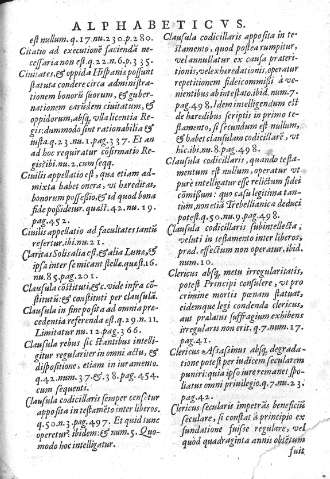 ALPHABETICVS.
est nullum. q.17. nu.230. p.280.
Citatio ad executionē faciendā necessaria
non est. q.22. n.6. p.335.
Ciuitates, & oppida Hispanis possunt
statuta condere circa administrationem
bonorũ suorum, & gubernationem
earũdem ciuitatum, &
oppidorum, absq; vlla licentia Regis:
dummodo sint rationabilia &
iusta. q.23. nu.1. pag.337. Et an
ad hoc requiratur cõfirmatio Regis?
ibi. nu.2. cum seqq.
Ciuilis appellatio est, qua etiam admixta
habet onera, vt hæreditas,
bonorum possessio, & id quod bona
fide possidetur. quæst. 42. nu. 19.
pag. 452.
Ciuilis appellatio ad facultates tantũ
refertur. ibi. nu. 21.
Claritas Solis alia est, & alia Lunæ, &
ipsa inter se micant stellæ. quæst. 16.
nu. 85. pag. 201.
Clausula cõstituti, &c. vide infra cõstitutũ:
& constituti per clausulã.
Clausula in fine posita ad omnia præcedentia
referenda est. q.19. n.11.
Limitatur nu. 12. pag. 366.
Clausula rebus sic stantibus intelligitur
regulariter in omni actu, &
dispositione, etiam in iuramento.
q.42. num. 37. & 38. pag. 454.
cum sequent.
Clausula codicillaris semper censetur
apposita in testamẽto inter liberos.
q.50. n.3. pag. 497. Et quid iure
operetur? ibidem: & num. 5. Quomodo
hoc intelligatur.
Clausula codicillaris apposita in testamento,
quod postea rumpitur,
vel annullatur ex causa præteritionis,
vel exhæredationis, operatur
repetitionem fideicommissi à venientibus
ab intestato. ibid. num. 7.
pag. 498. Idem intelligendum est
de hæredibus scriptis in primo testamento,
si secundum est nullum,
& habet clausulam codicillarē, vt
hic: ibi. nu. 8. pag. 498.
Clausula codicillaris, quando testamentum
est nullum, operatur vt
purè intelligatur esse relictum fideicõmissum:
quo casu legitima tantum,
non etiã Trebellianica deduci
potest. q.50. nu. 9. pag. 498.
Clausula codicillaris subintellecta,
veluti in testamento inter liberos,
prædi. effectum non operatur. ibid.
num. 10.
Clericus absq; metu irregularitatis,
potest Principi consulere, vt pro
crimine mortis pœnam statuat,
eidemque legi condenda clericus,
aut prælatus suffragium exhibens
irregularis non erit. q.7. nu. 17.
pag. 41.
Clericus Assasinus absq; degradatione
potest per iudicem sæcularem
puniri: quia ipso iure remanet spoliatus
omni priuilegio. q.7. nu. 23.
pag. 42.
Clericus sæcularis impetrãs beneficiũ
sæculare, si constat à principio ex
fundatione fuisse regulare, vel
quòd quadraginta annis obtẽtum
fuit